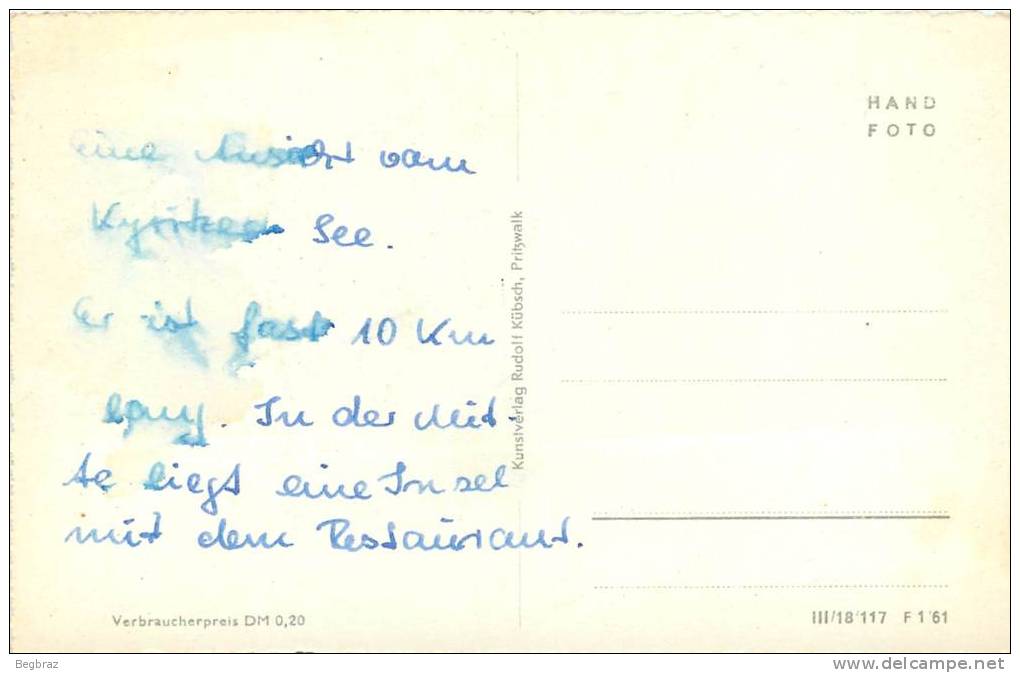 eine Ansicht vom
Kyritzer See.
Er ist fast 10 Km
lang. In der Mit-
te liegt eine Insel
mit dem Restaurant.
Verbraucherpreis DM 0,20
Kunstverlag Rudolf Kübsch, Pritzwalk
HAND
FOTO
III/18/117 F 1'61
Begbraz
www.delcampe.net